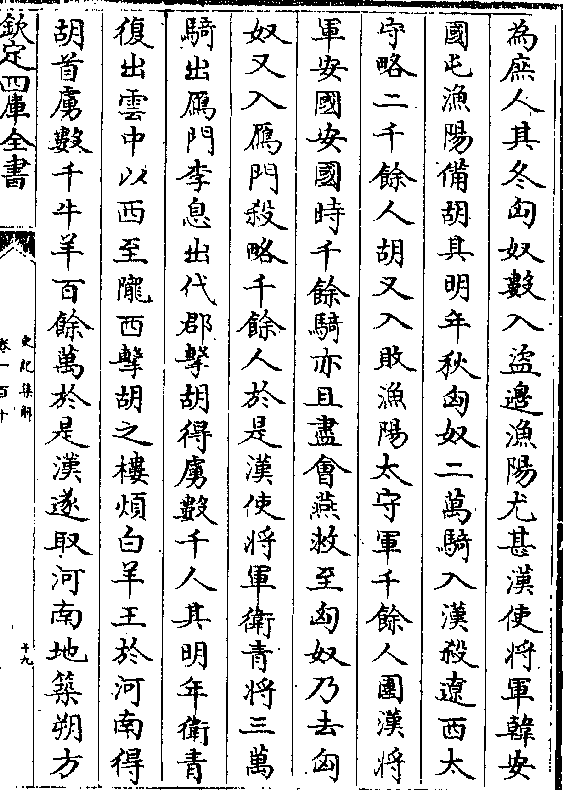 為庶人其冬匈奴數入盜邊漁陽尤甚漢使將軍韓安
國屯漁陽備胡其明年秋匈奴二萬騎入漢殺遼西太
守略二千餘人胡又入敗漁陽太守軍千餘人圍漢將
軍安國安國時千餘騎亦且盡會燕救至匈奴乃去匈
奴又入鴈門殺略千餘人於是漢使將軍衛青將三萬
騎出鴈門李息出代郡擊胡得虜數千人其明年衛青
復出雲中以西至隴西擊胡之樓煩白羊王於河南得
胡首虜數千牛羊百餘萬於是漢遂取河南地築朔方
欽定四庫全書
史記集解
卷一百十
十九